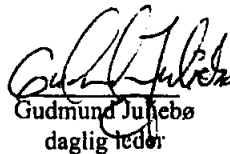 Gudmund Julebø
daglig leder